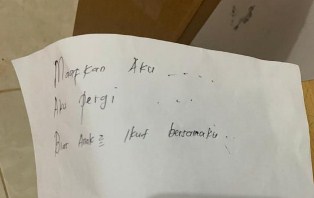 Maafkan Aku ....
Aku pergi ...
Biar Anak2 Ikut bersamaku ..